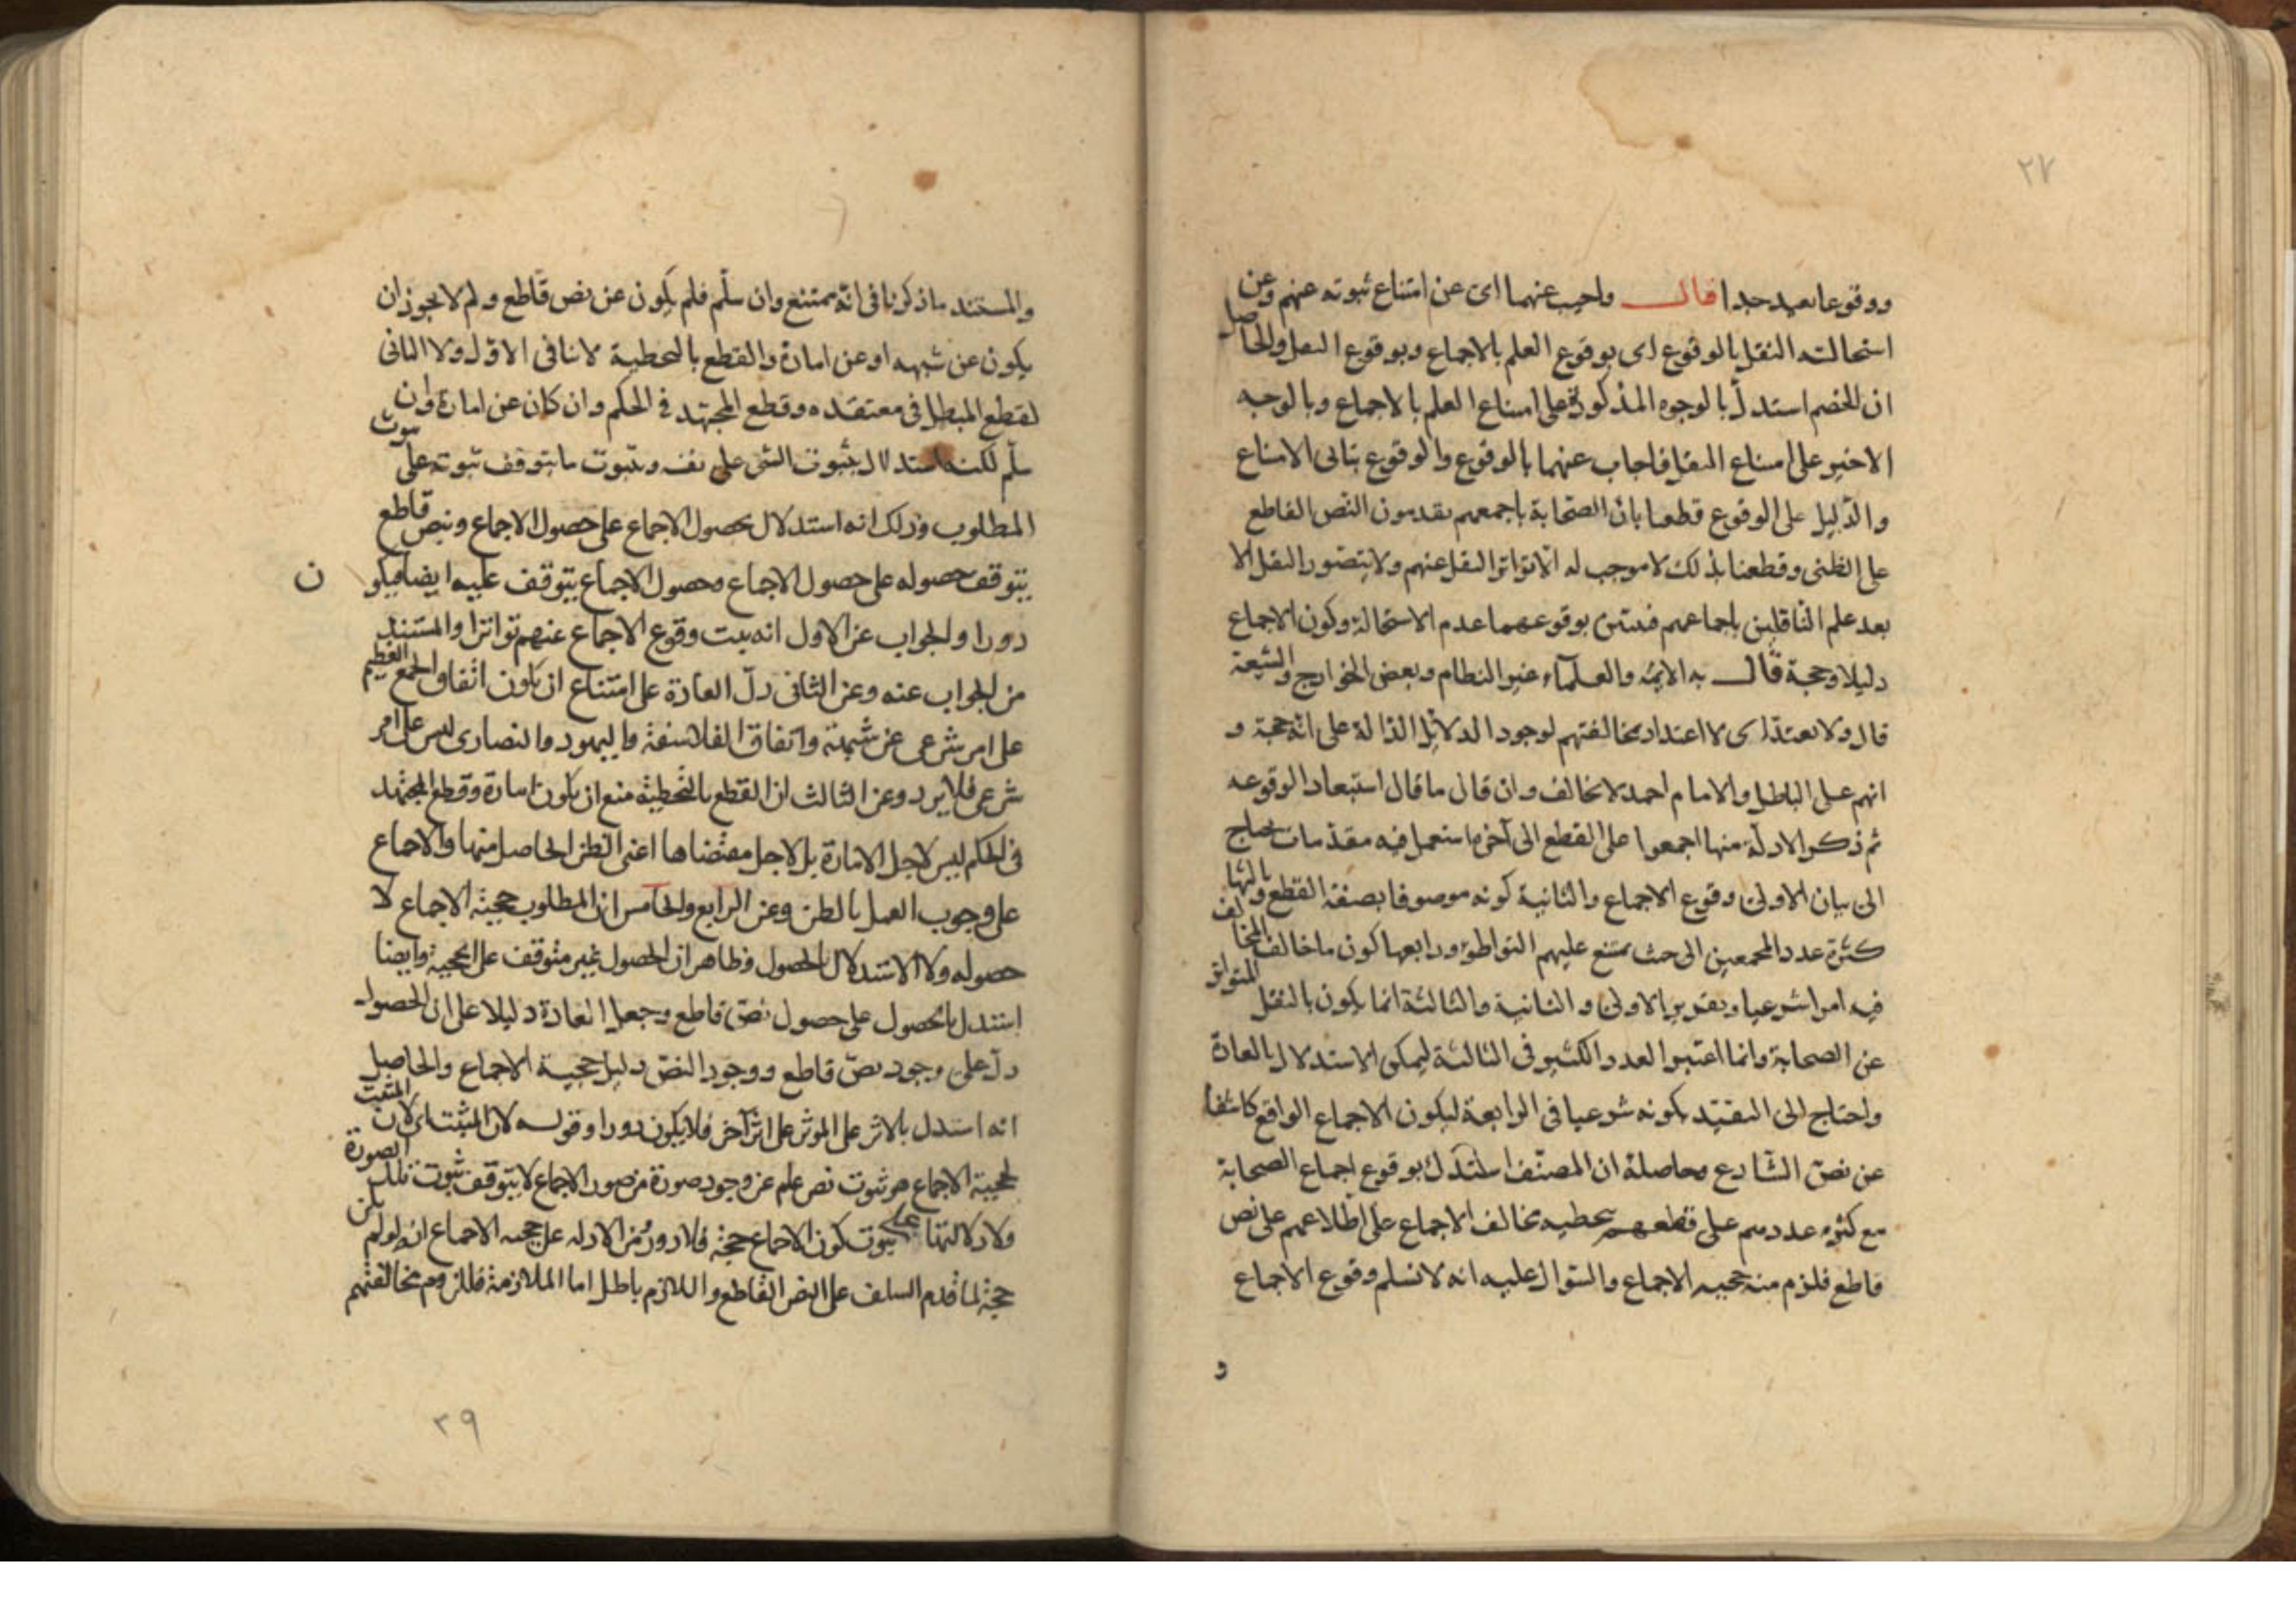 ٢٧
ووقوعا بعيد جدا قال واجيب عنهما اى عن امتناع ثبوته عنهم وعن
استحالته النقل بالوقوع اى بوقوع العلم بالاجماع وبوقوع النقل والحاصل
ان الخصم استدل بالوجوه المذكورة على امتناع العلم بالاجماع وبالوجه
الاخير على امتناع النقل فاجاب عنهما بالوقوع والوقوع ينافى الامتناع
والدليل على الوقوع قطعنا بان الصحابة باجمعهم يقدمون النص القاطع
على الظنى وقطعنا بذلك لا موجب له الا تواتر النقل عنهم ولا يتصور النقل الا
بعد علم الناقلين باجماعهم فتبين بوقوعهما عدم الاستحالة وكون الاجماع
دليلا وحجة قال به الايمه والعلماء غير النظام وبعض الخوارج والشيعة
قال ولا يعتد اى لا اعتداد بمخالفتهم لوجود الدلائل الدالة على انه حجة و
انهم على الباطل والامام احمد لا يخالف وان قال ما قال استبعاد الوقوعه
ثم ذكر الادلة منها اجمعوا على القطع الى آخر ما استعمل فيه مقدمات يحتاج
الى بيان الاولى وقوع الاجماع والثانية كونه موصوفا بصفة القطع وثالثها
كثرة عدد المجمعين الى حيث يمتنع عليهم التواطؤ ورابعها كون ما خالف المخالف
فيه امرا شرعيا وتقرير الاولى والثانية والثالثة انما يكون بالنقل المتواتر
عن الصحابة وانما اعتبروا العدد الكثير فى الثالثة ليمكن الاستدلال بالعادة
واحتاج الى التقييد بكونه شرعيا فى الرابعة ليكون الاجماع الواقع كاشفا
عن نص الشارع محاصله ان المصنف استدل بوقوع اجماع الصحابة
مع كثره عددهم على قطعهم بتخطيه مخالف الاجماع على اطلاعهم على نص
قاطع فلزم منه حجيه الاجماع والسؤال عليه انه لا نسلم وقوع الاجماع
و
والمستند ما ذكرنا فى انه ممتنع وان سلّم فلم يكون عن نص قاطع ولم لا يجوز ان
يكون عن شبهه او عن امارة والقطع بالتخطية لا ينافى الاول ولا الثانى
لقطع المبطل فى معتقده وقطع المجتهد فى الحكم وان كان عن امارة وان
سلّم لكنه استدلال بثبوت الشى على نفسه وبثبوت ما يتوقف ثبوته على ثبوت
المطلوب وذلك انه استدلال بحصول الاجماع على حصول الاجماع وبنص قاطع
يتوقف حصوله على حصول الاجماع وحصول الاجماع يتوقف عليه ايضا فيكون
دورا والجواب عن الاول انه ثبت وقوع الاجماع عنهم تواترا والمستند
مر الجواب عنه وعن الثانى دلّ العادة على امتناع ان يكون اتفاق الجمع العظيم
على امر شرعى عن شبهة واتفاق الفلاسفة واليهود والنصارى ليس على امر
شرعى فلا يرد وعن الثالث ان القطع بالتخطية منع ان يكون امارة وقطع المجتهد
فى الحكم ليس لاجل الامارة بل لاجل مقتضاها اعنى الظن الحاصل منها والاجماع
على وجوب العمل بالظن وعن الرابع والخامس ان المطلوب حجية الاجماع لا
حصوله ولا الاستدلال بالحصول فظاهر ان الحصول غير متوقف على الحجية وايضا
استدل بالحصول على حصول نص قاطع وجعل العادة دليلا على ان الحصول
دلّ على وجود نص قاطع ووجود النص دليل حجية الاجماع والحاصل
انه استدل بالاثر على الموثر على اثر آخر فلا يكون دورا وقوله لان المثبت اى لان المثبت
لحجية الاجماع هو ثبوت نص علم عن وجود صورة من صور الاجماع لا يتوقف ثبوت تلك الصورة
ولا دلالتها على ثبوت كون الاجماع حجة فلا دور من الادله على حجيه الاجماع انه لو لم يكن
حجة لما قدم السلف على النص القاطع واللازم باطل اما الملازمة فللزوم مخالفتهم
٣٩